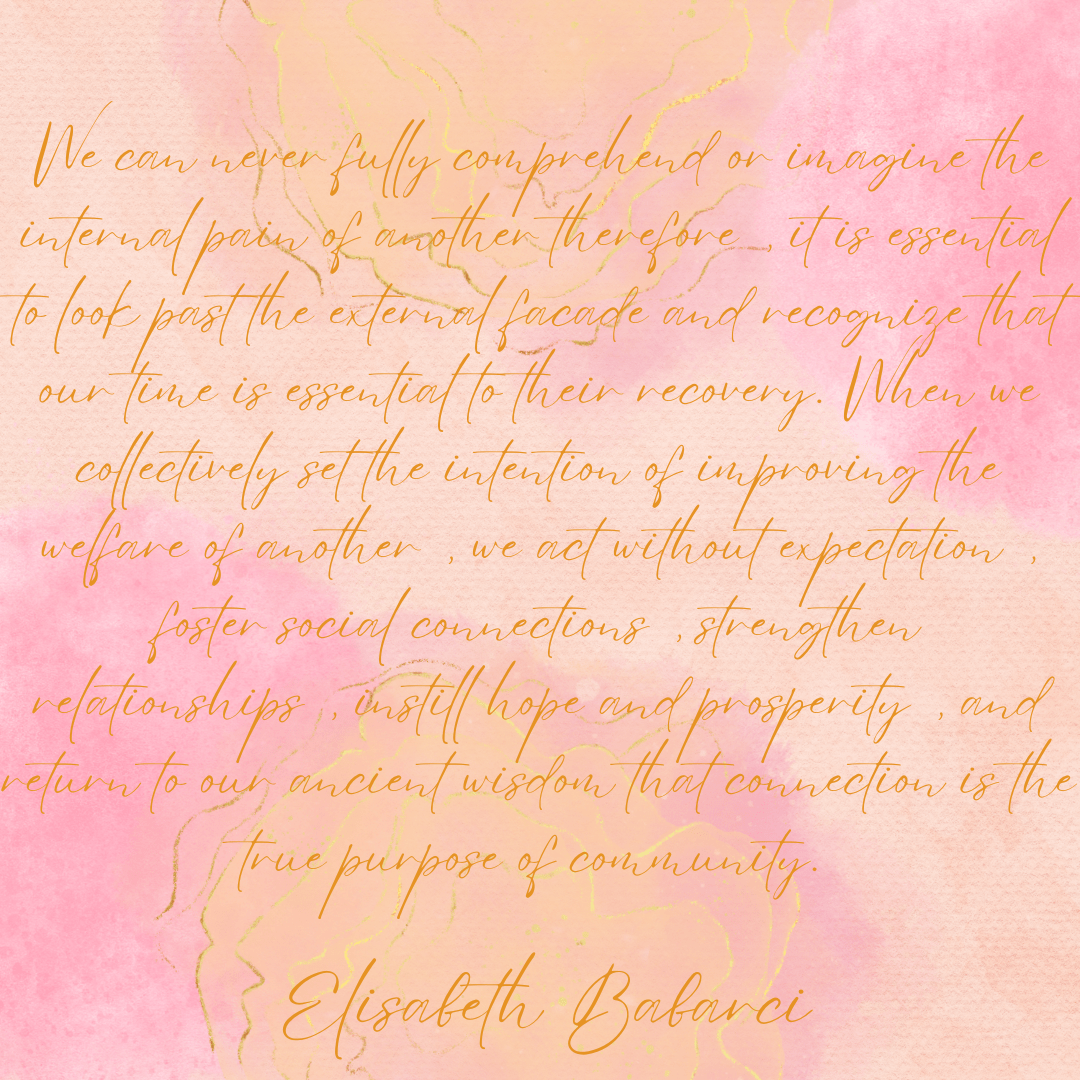 We can never fully comprehend or imagine the
internal pain of another therefore , it is essential
to look past the external facade and recognize that
our time is essential to their recovery. When we
collectively set the intention of improving the
welfare of another , we act without expectation ,
foster social connections , strengthen
relationships , instill hope and prosperity , and
return to our ancient wisdom that connection is the
true purpose of community.
Elisabeth Babarci